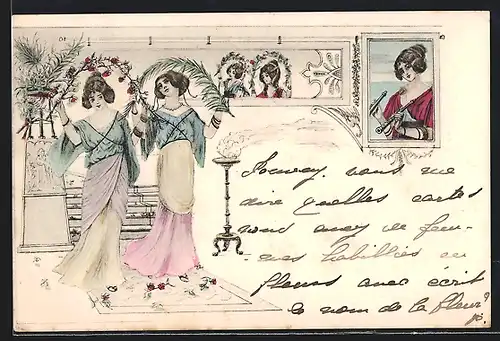 Pouvez vous me
dire quelles cartes
vous avez de fem-
mes habillées en
fleurs avec écrit
le nom de la fleur?